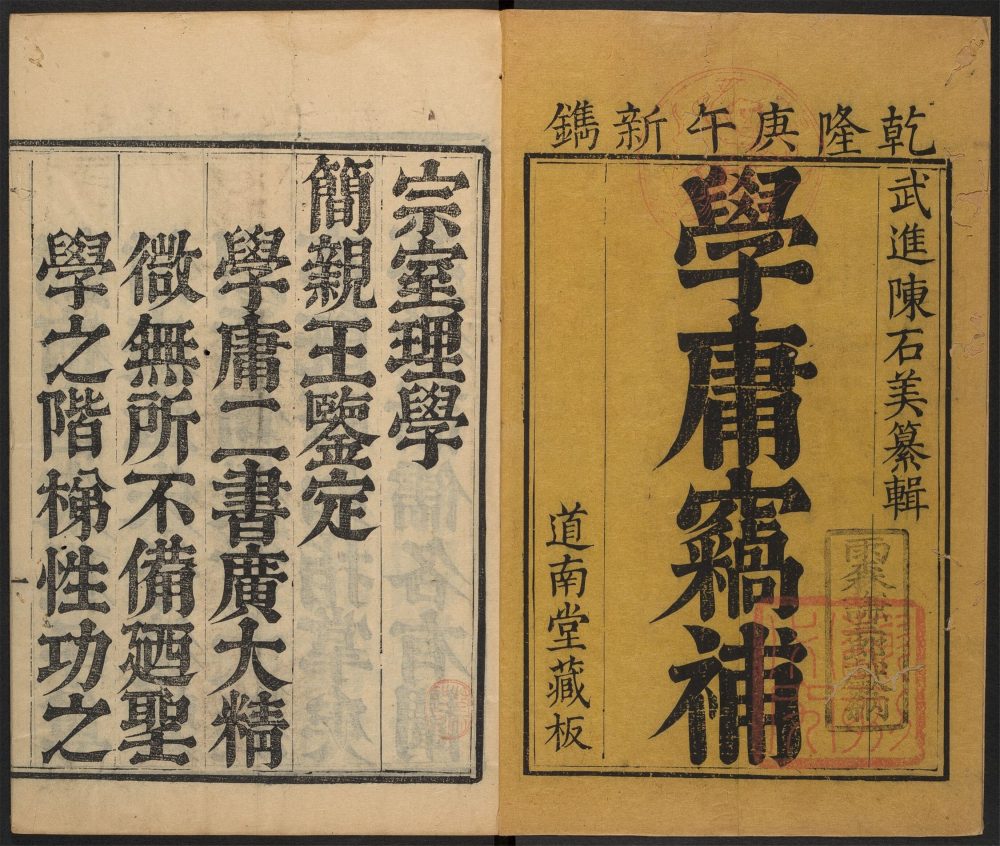 乾隆庚午新鐫
武進陳石美纂輯
學庸竊補
道南堂藏板
宗室理學
簡親王鑒定
學庸二書廣大精
微無所不備廼聖
學之階梯性功之
一